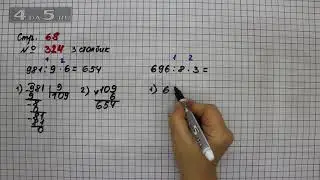 4DA5.RU
Стр. 68
№ 324 3 столбик
1 2
981 : 9 · 6 = 654
1) 981 9
9 109
8
0
81
81
0
2) × 109
6
654
1 2
696 : 8 · 3 =
1) 6